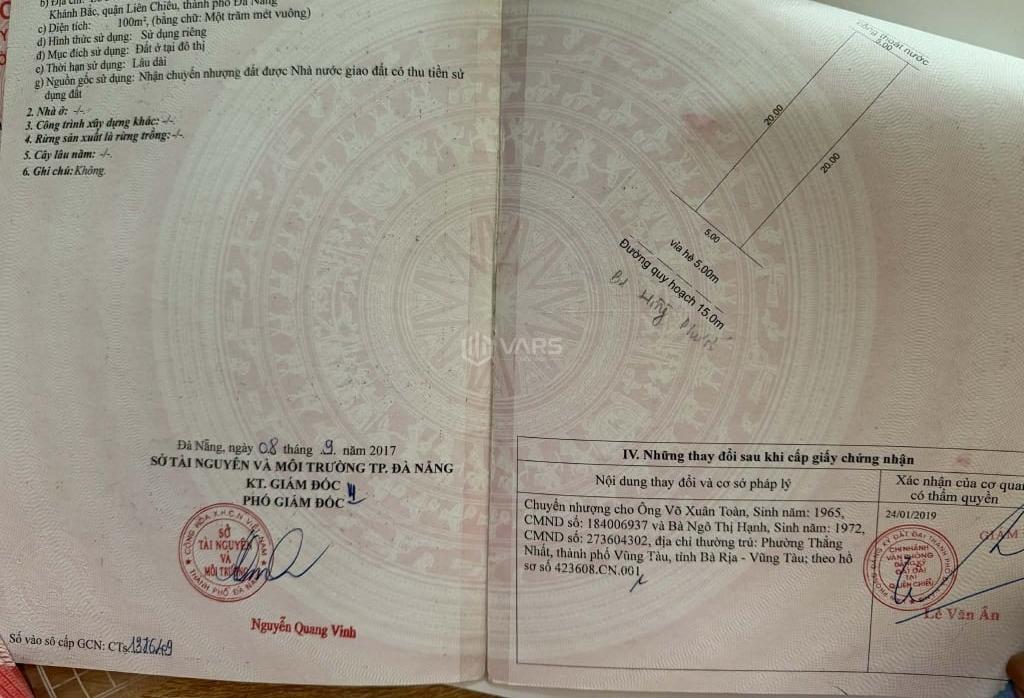 b) Địa chỉ:
Khánh Bắc, quận Liên Chiểu, thành phố Đà Nẵng
c) Diện tích: 100m², (bằng chữ: Một trăm mét vuông)
d) Hình thức sử dụng: Sử dụng riêng
đ) Mục đích sử dụng: Đất ở tại đô thị
e) Thời hạn sử dụng: Lâu dài
g) Nguồn gốc sử dụng: Nhận chuyển nhượng đất được Nhà nước giao đất có thu tiền sử
dụng đất
2. Nhà ở: -/-
3. Công trình xây dựng khác: -/-
4. Rừng sản xuất là rừng trồng: -/-
5. Cây lâu năm: -/-
6. Ghi chú: Không.
Đà Nẵng, ngày 08 tháng 9. năm 2017
SỞ TÀI NGUYÊN VÀ MÔI TRƯỜNG TP. ĐÀ NẴNG
KT. GIÁM ĐỐC
PHÓ GIÁM ĐỐC
CỘNG HÒA X.H.C.N VIỆT NAM
SỞ
TÀI NGUYÊN
VÀ
MÔI TRƯỜNG
THÀNH PHỐ ĐÀ NẴNG
Nguyễn Quang Vinh
Số vào sổ cấp GCN: CTs
thoát nước
5.00
20.00
20.00
5.00
vỉa hè 5.00m
Đường quy hoạch 15.0m
VARS
IV. Những thay đổi sau khi cấp giấy chứng nhận
Nội dung thay đổi và cơ sở pháp lý
Xác nhận của cơ quan
có thẩm quyền
Chuyển nhượng cho Ông Võ Xuân Toàn, Sinh năm: 1965,
CMND số: 184006937 và Bà Ngô Thị Hạnh, Sinh năm: 1972,
CMND số: 273604302, địa chỉ thường trú: Phường Thắng
Nhất, thành phố Vũng Tàu, tỉnh Bà Rịa - Vũng Tàu; theo hồ
sơ số 423608.CN.001
24/01/2019
GIÁM
CHI NHÁNH
VĂN PHÒNG
ĐĂNG KÝ
ĐẤT ĐAI
TẠI
QUẬN LIÊN CHIỂU
Lê Văn Ẩn